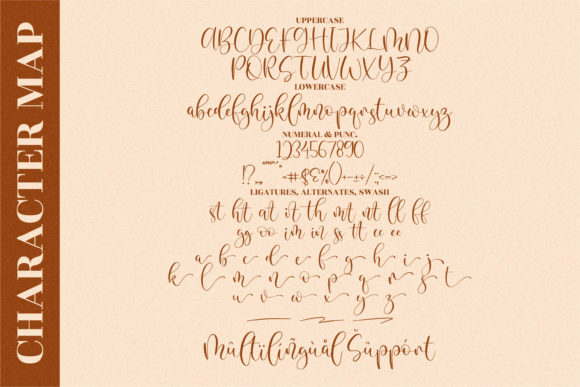 CHARACTER MAP
UPPERCASE
ABCDEFGHIJKLMNO
PQRSTUVWXYZ
LOWERCASE
abcdefghijklmnopqrstuvwxyz
NUMERAL & PUNC.
1234567890
!? ~#$€%()+-±÷/:;<=>
LIGATURES, ALTERNATES, SWASH
st ht at it th mt nt ll ff
gg oo im in ss tt cc ee
a b c d e f g h i j
k l m n o p q r s t
u v w x y z
Mûltïlíñgùål Šûppórt